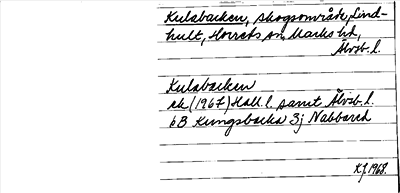 Kulabacken, skogsområde, Lind-
hult, Horreds sn, Marks hd,
Älvsb. l.
Kulabacken
ek (1967) Hall. l. samt Älvsb. l.
6B Kungsbacka 3j Nabbared
KJ 1968.